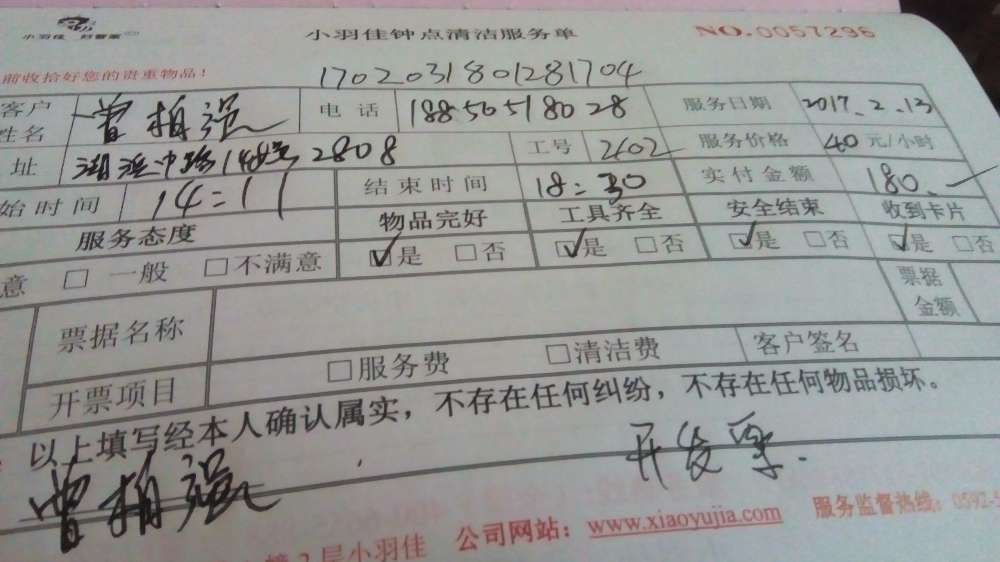 小羽佳 好管家 小羽佳钟点清洁服务单 NO.0057296
前收拾好您的贵重物品! 1702031801281704
客户姓名 曾相强 电话 18850518028 服务日期 2017.2.13
址 湖滨中路148号2808 工号 2402 服务价格 40元/小时
始时间 14:11 结束时间 18:30 实付金额 180.
服务态度 物品完好 工具齐全 安全结束 收到卡片
意 □ 一般 □不满意 ☑是 □否 ☑是 □否 ☑是 □否 ☑是 □否
票据名称 票据金额
开票项目 □服务费 □清洁费 客户签名
以上填写经本人确认属实，不存在任何纠纷，不存在任何物品损坏。
曾相强 开发票.
楼2层小羽佳 公司网站：www.xiaoyujia.com 服务监督热线：0592-5